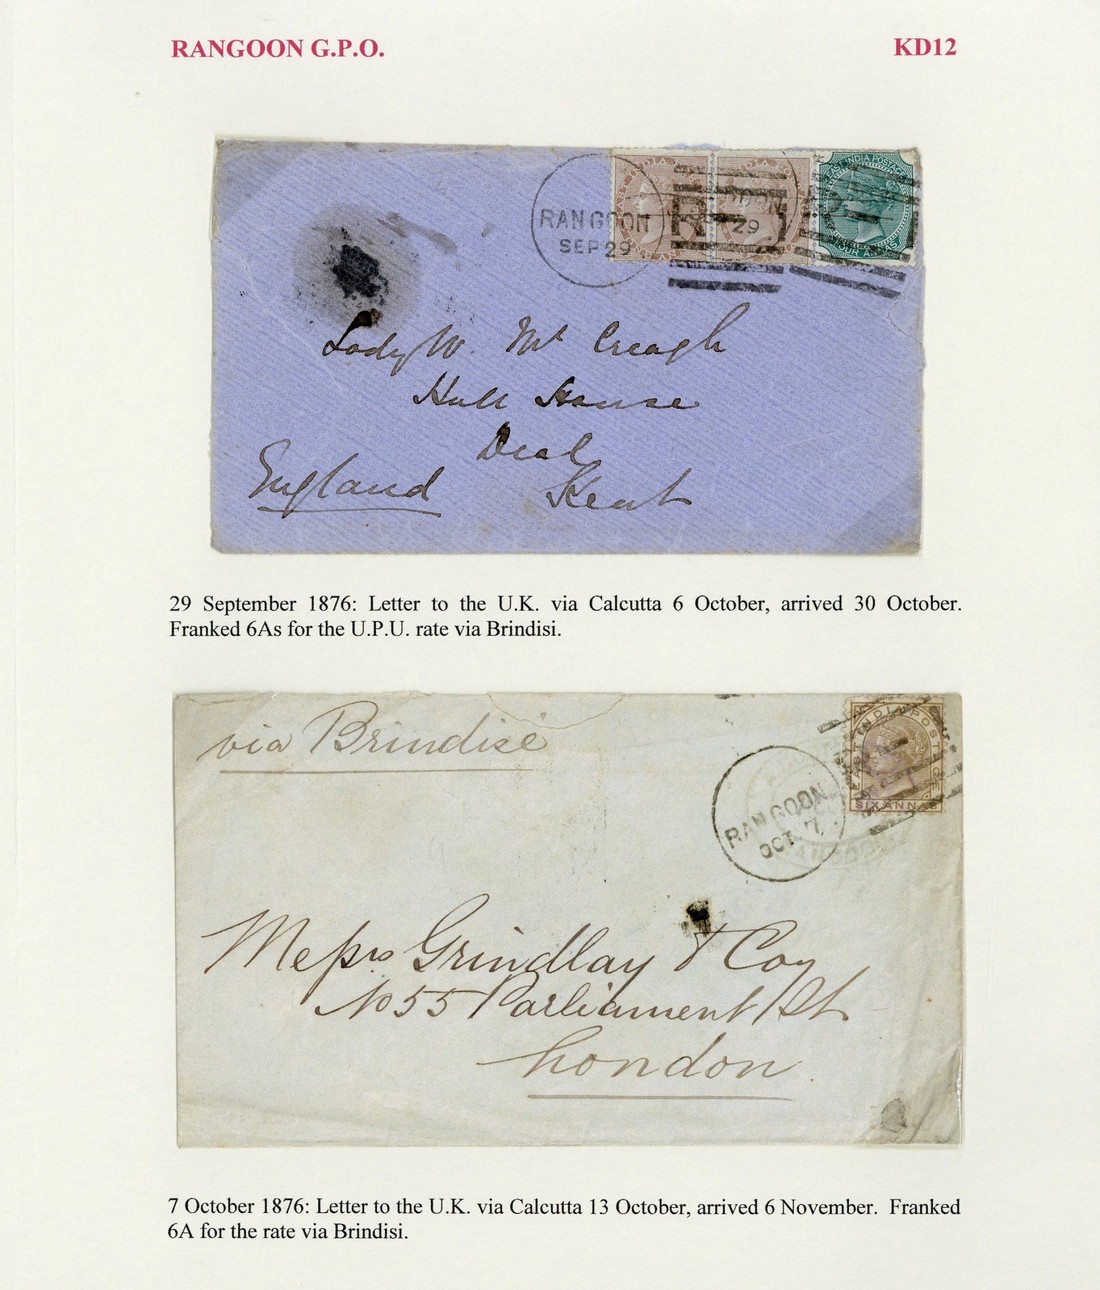 RANGOON G.P.O. KD12
EAST INDIA POSTAGE
FOUR ANNAS
RANGOON
SEP 29
29
Lady W. Mt Creagh
Hull House
Deal
England Kent
29 September 1876: Letter to the U.K. via Calcutta 6 October, arrived 30 October.
Franked 6As for the U.P.U. rate via Brindisi.
via Brindisi
EAST INDIA POSTAGE
SIX ANNAS
RANGOON
OCT. 7
Messrs Grindlay & Coy
No 55 Parliament St
London
7 October 1876: Letter to the U.K. via Calcutta 13 October, arrived 6 November. Franked
6A for the rate via Brindisi.